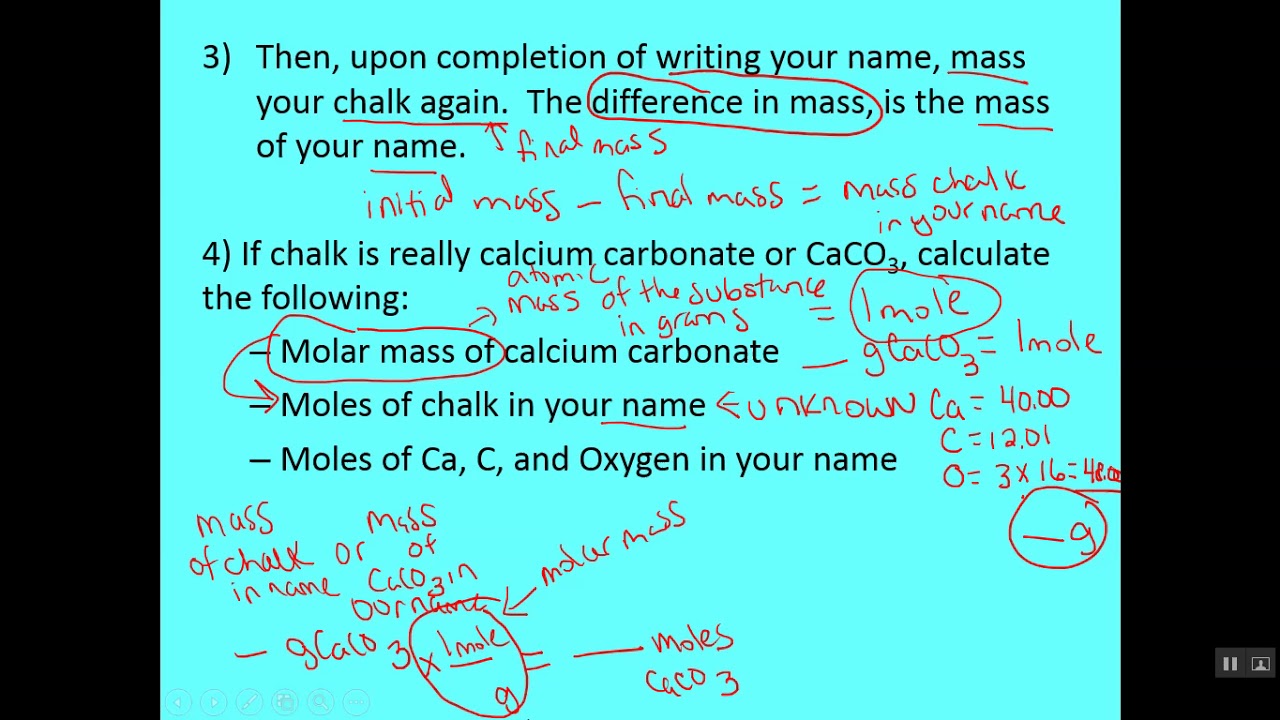 3) Then, upon completion of writing your name, mass
your chalk again. The difference in mass, is the mass
of your name. final mass
initial mass - final mass = mass chalk
in your name
4) If chalk is really calcium carbonate or CaCO3, calculate
the following:
atomic
mass of the substance
in grams = 1mole
– Molar mass of calcium carbonate __ gCaCO3 = 1mole
– Moles of chalk in your name ← UNKNOWN Ca = 40.00
C = 12.01
– Moles of Ca, C, and Oxygen in your name
O = 3 x 16 = 48.00
__ g
mass
of chalk
in name
or
mass
of
CaCO3 in
our name
molar mass
__ gCaCO3 x 1mole = __ moles
g CaCO3